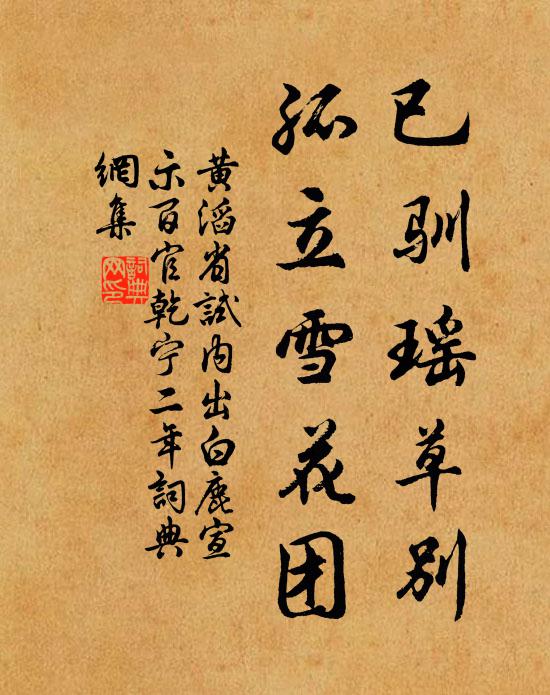 已驯瑶草别
孤立雪花团
黄滔省試内出白鹿宣
示百官乾宁二年詞典
網集
詞典
网印